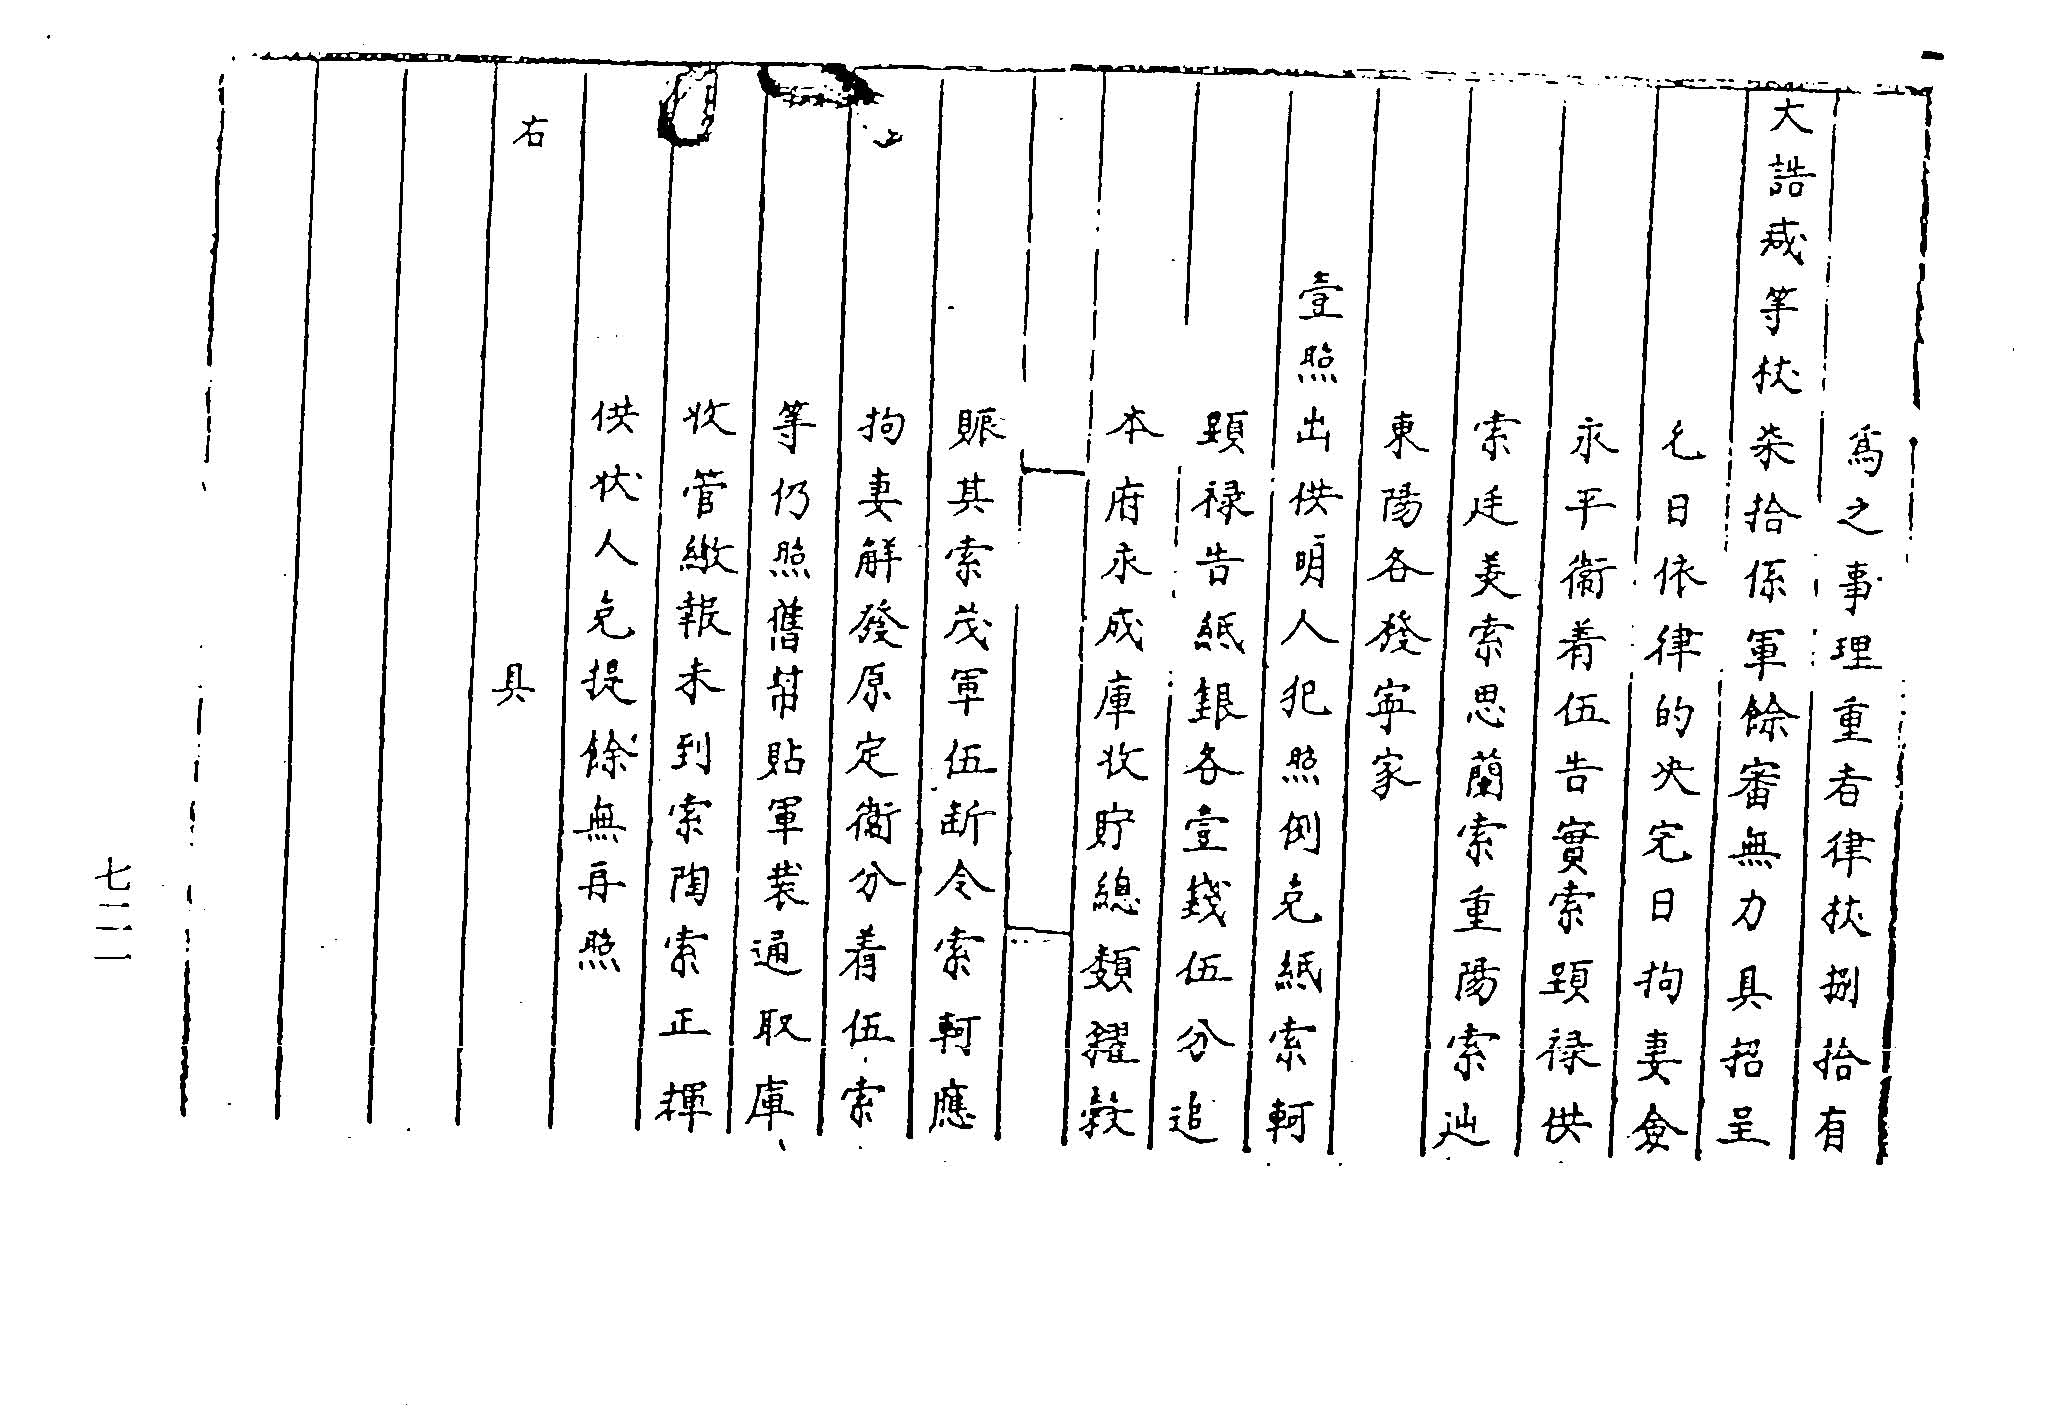 爲之事理重者律杖捌拾有
大誥减等杖柒拾係軍餘審無力具招呈
乞日依律的决完日拘妻僉
永平衞着伍告實索顕禄供
索廷美索思蘭索重陽索辿
東陽各發寜家
壹照出供明人犯照例免紙索軻
顕禄告紙銀各壹錢伍分追
本府永成庫收貯總類糴穀
賑其索茂軍伍断令索軻應
拘妻解發原定衞分着伍索
等仍照舊幇貼軍裝通取庫
收管繳報未到索陶索正揮
供状人免提餘無再照
右具
七二一